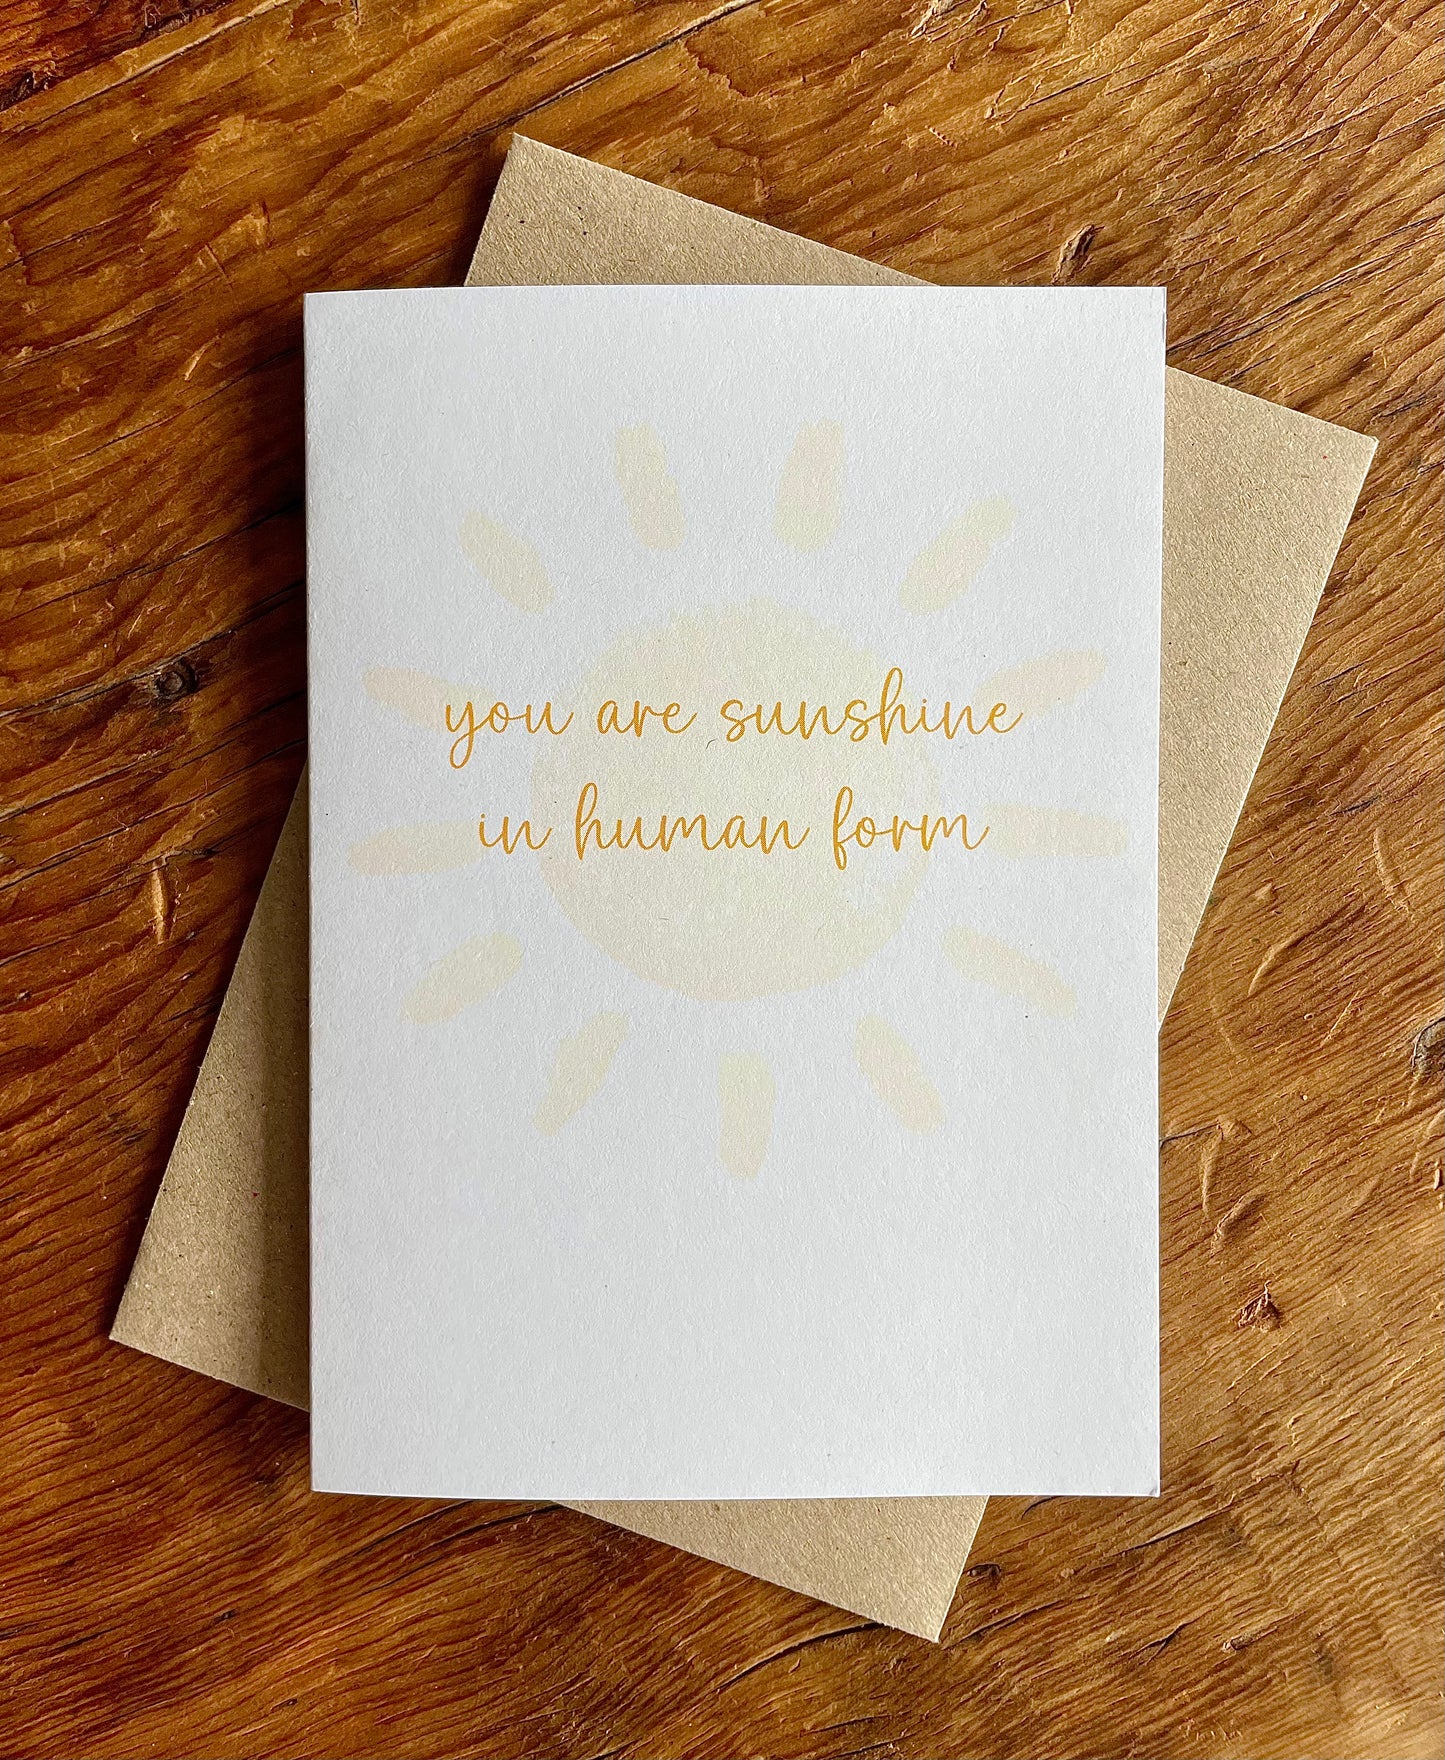 you are sunshine
in human form